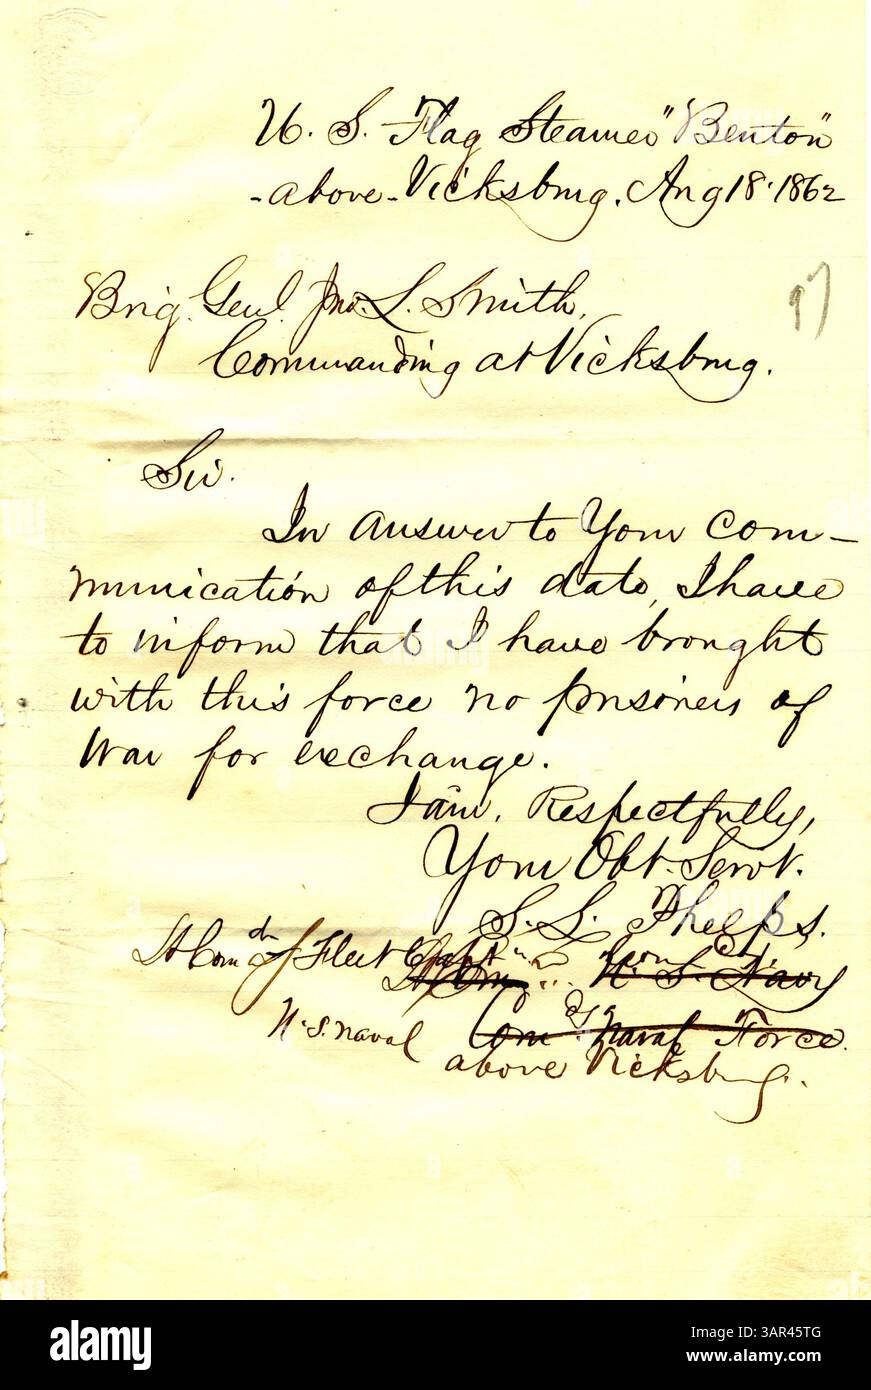 U. S. Flag Steamer "Benton"
- above - Vicksburg. Aug 18. 1862
Brig. Genl. Jno. L. Smith,
97
Commanding at Vicksburg.
Sir.
In answer to Your com-
munication of this date, I have
to inform that I have brought
with this force no prisoners of
War for exchange.
I am, Respectfully,
Your Obt. Servt.
S. L. Phelps.
Lt Comd Fleet Capt Com
U. S. Navy
U.S. Naval Com Naval Force
above Vicksburg.
alamy
Image ID: 3AR45TG
www.alamy.com